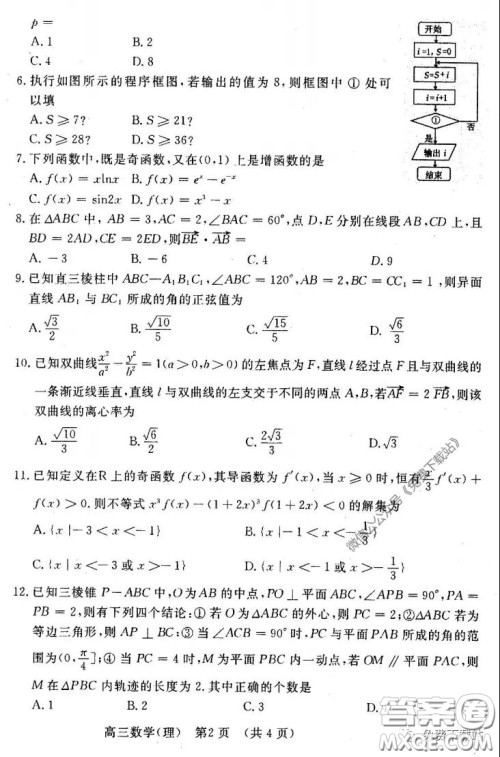 p=
A. 1 B. 2
C. 4 D. 8
6. 执行如图所示的程序框图,若输出的值为 8,则框图中 ① 处可
以填
A. S⩾7? B. S⩾21?
C. S⩾28? D. S⩾36?
开始
i=1, S=0
S=S+i
i=i+1
①
否
是
输出 i
结束
7. 下列函数中,既是奇函数,又在(0,1) 上是增函数的是
A. f(x)=xlnx B. f(x)=eˣ-e⁻ˣ
C. f(x)=sin2x D. f(x)=x³-x
8. 在△ABC 中, AB=3,AC=2,∠BAC=60°,点 D,E 分别在线段 AB,CD 上,且
BD=2AD,CE=2ED,则BE·AB=
A. -3 B. -6 C. 4 D. 9
9. 已知直三棱柱中 ABC—A₁B₁C₁,∠ABC=120°,AB=2,BC=CC₁=1,则异面
直线 AB₁ 与 BC₁ 所成的角的正弦值为
A. √3/2 B. √10/5 C. √15/5 D. √6/3
10. 已知双曲线x²/a²-y²/b²=1(a>0,b>0) 的左焦点为 F,直线 l 经过点 F 且与双曲线的
一条渐近线垂直,直线 l 与双曲线的左支交于不同的两点 A,B,若AF=2FB,则该
双曲线的离心率为
A. √10/3 B. √6/2 C. 2√3/3 D. √3
11. 已知定义在R 上的奇函数 f(x),其导函数为 f′(x),当 x⩾0 时,恒有x/3 f′(x)+
f(x)>0.则不等式 x³f(x)-(1+2x)³f(1+2x)<0 的解集为
A. {x|-3<x<-1} B. {x|-1<x<-1/3}
C. {x|x<-3或x>-1} D. {x|x<-1或x>-1/3}
12. 已知三棱锥 P-ABC 中,O为 AB 的中点,PO⊥平面 ABC,∠APB=90°,PA=
PB=2,则有下列四个结论:① 若 O为△ABC 的外心,则 PC=2;②△ABC 若为
等边三角形,则 AP⊥BC;③ 当∠ACB=90° 时,PC 与平面 PAB 所成的角的范
围为(0,π/4];④ 当 PC=4 时,M为平面 PBC 内一动点,若 OM∥平面 PAC,则
M 在△PBC 内轨迹的长度为 2.其中正确的个数是
A. 1 B. 2 C. 3 D. 4
高三数学(理) 第2页 (共 4 页)
答案圈
MXQE.COM